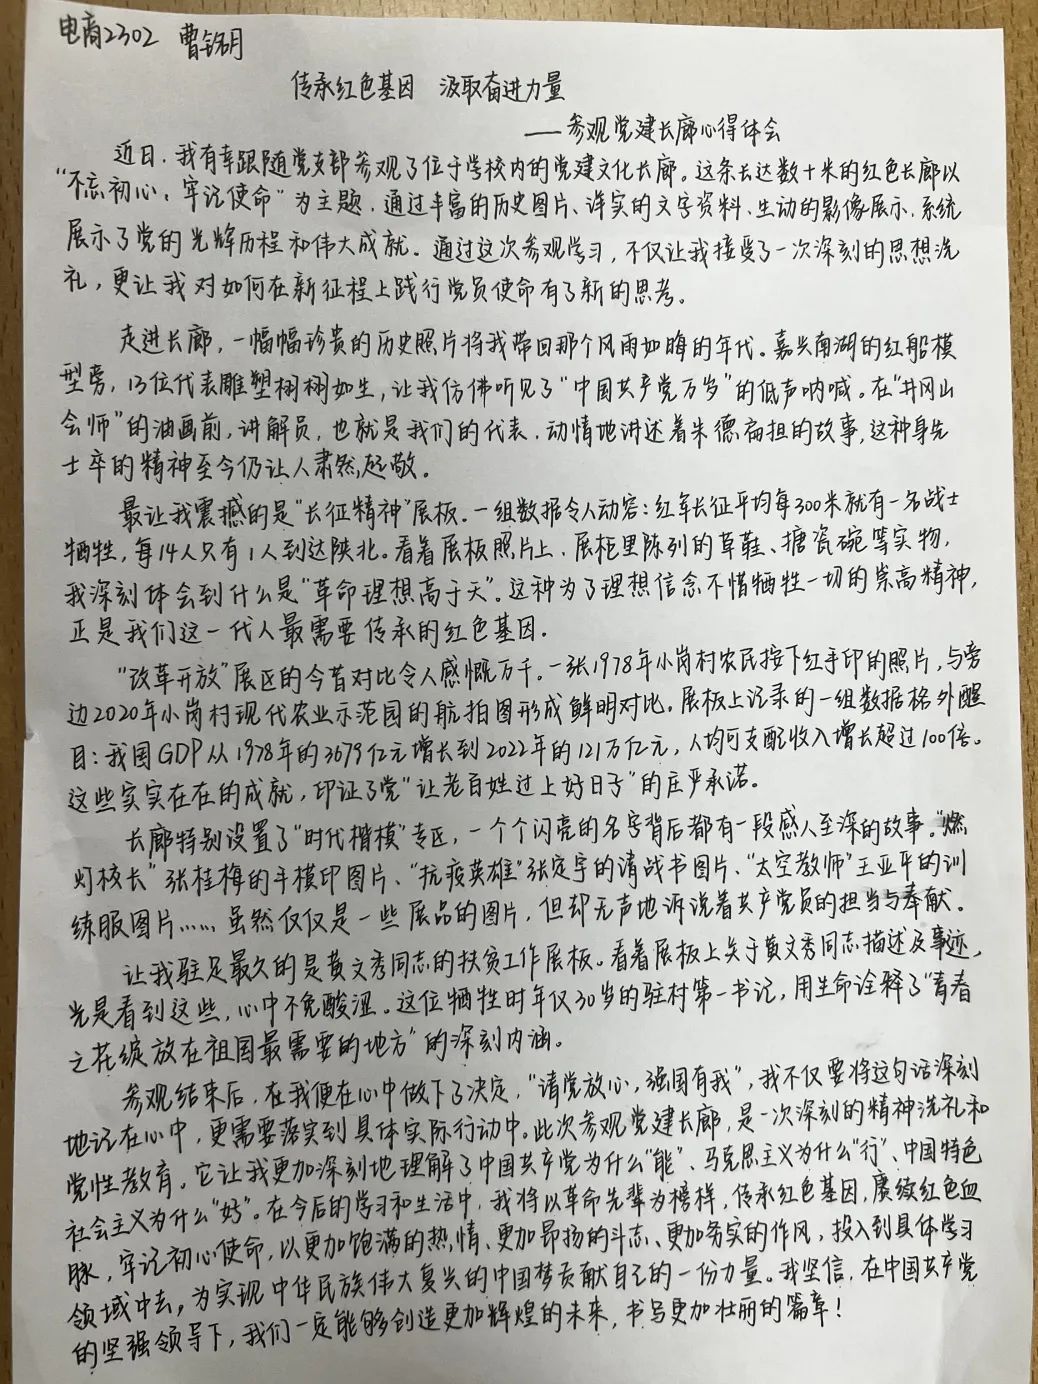 电商2302 曹铭月
传承红色基因 汲取奋进力量
——参观党建长廊心得体会
近日，我有幸跟随党支部参观了位于学校内的党建文化长廊。这条长达数十米的红色长廊以
“不忘初心，牢记使命”为主题，通过丰富的历史图片、详实的文字资料、生动的影像展示，系统
展示了党的光辉历程和伟大成就。通过这次参观学习，不仅让我接受了一次深刻的思想洗
礼，更让我对如何在新征程上践行党员使命有了新的思考。
走进长廊，一幅幅珍贵的历史照片将我带回那个风雨如晦的年代。嘉兴南湖的红船模
型旁，13位代表雕塑栩栩如生，让我仿佛听见了“中国共产党万岁”的低声呐喊。在“井冈山
会师”的油画前，讲解员，也就是我们的代表，动情地讲述着朱德扁担的故事，这种身先
士卒的精神至今仍让人肃然起敬。
最让我震撼的是“长征精神”展板。一组数据令人动容：红军长征平均每300米就有一名战士
牺牲，每14人只有1人到达陕北。看着展板照片上，展柜里陈列的草鞋、搪瓷碗等实物，
我深刻体会到什么是“革命理想高于天”。这种为了理想信念不惜牺牲一切的崇高精神，
正是我们这一代人最需要传承的红色基因。
“改革开放”展区的今昔对比令人感慨万千。一张1978年小岗村农民按下红手印的照片，与旁
边2020年小岗村现代农业示范园的航拍图形成鲜明对比。展板上记录的一组数据格外醒
目：我国GDP从1978年的3679亿元增长到2022年的121万亿元，人均可支配收入增长超过100倍。
这些实实在在的成就，印证了党“让老百姓过上好日子”的庄严承诺。
长廊特别设置了“时代楷模”专区，一个个闪亮的名字背后都有一段感人至深的故事。“燃
灯校长”张桂梅的手模印图片、“抗疫英雄”张定宇的请战书图片、“太空教师”王亚平的训
练服图片……虽然仅仅是一些展品的图片，但却无声地诉说着共产党员的担当与奉献。
让我驻足最久的是黄文秀同志的扶贫工作展板。看着展板上关于黄文秀同志描述及事迹，
光是看到这些，心中不免酸涩。这位牺牲时年仅30岁的驻村第一书记，用生命诠释了“青春
之花绽放在祖国最需要的地方”的深刻内涵。
参观结束后，在我便在心中做下了决定，“请党放心，强国有我”，我不仅要将这句话深刻
地记在心中，更需要落实到具体实际行动中。此次参观党建长廊，是一次深刻的精神洗礼和
党性教育。它让我更加深刻地理解了中国共产党为什么“能”、马克思主义为什么“行”、中国特色
社会主义为什么“好”。在今后的学习和生活中，我将以革命先辈为榜样，传承红色基因，赓续红色血
脉，牢记初心使命，以更加饱满的热情、更加昂扬的斗志、更加务实的作风，投入到具体学习
领域中去，为实现中华民族伟大复兴的中国梦贡献自己的一份力量。我坚信，在中国共产党
的坚强领导下，我们一定能够创造更加辉煌的未来，书写更加壮丽的篇章！